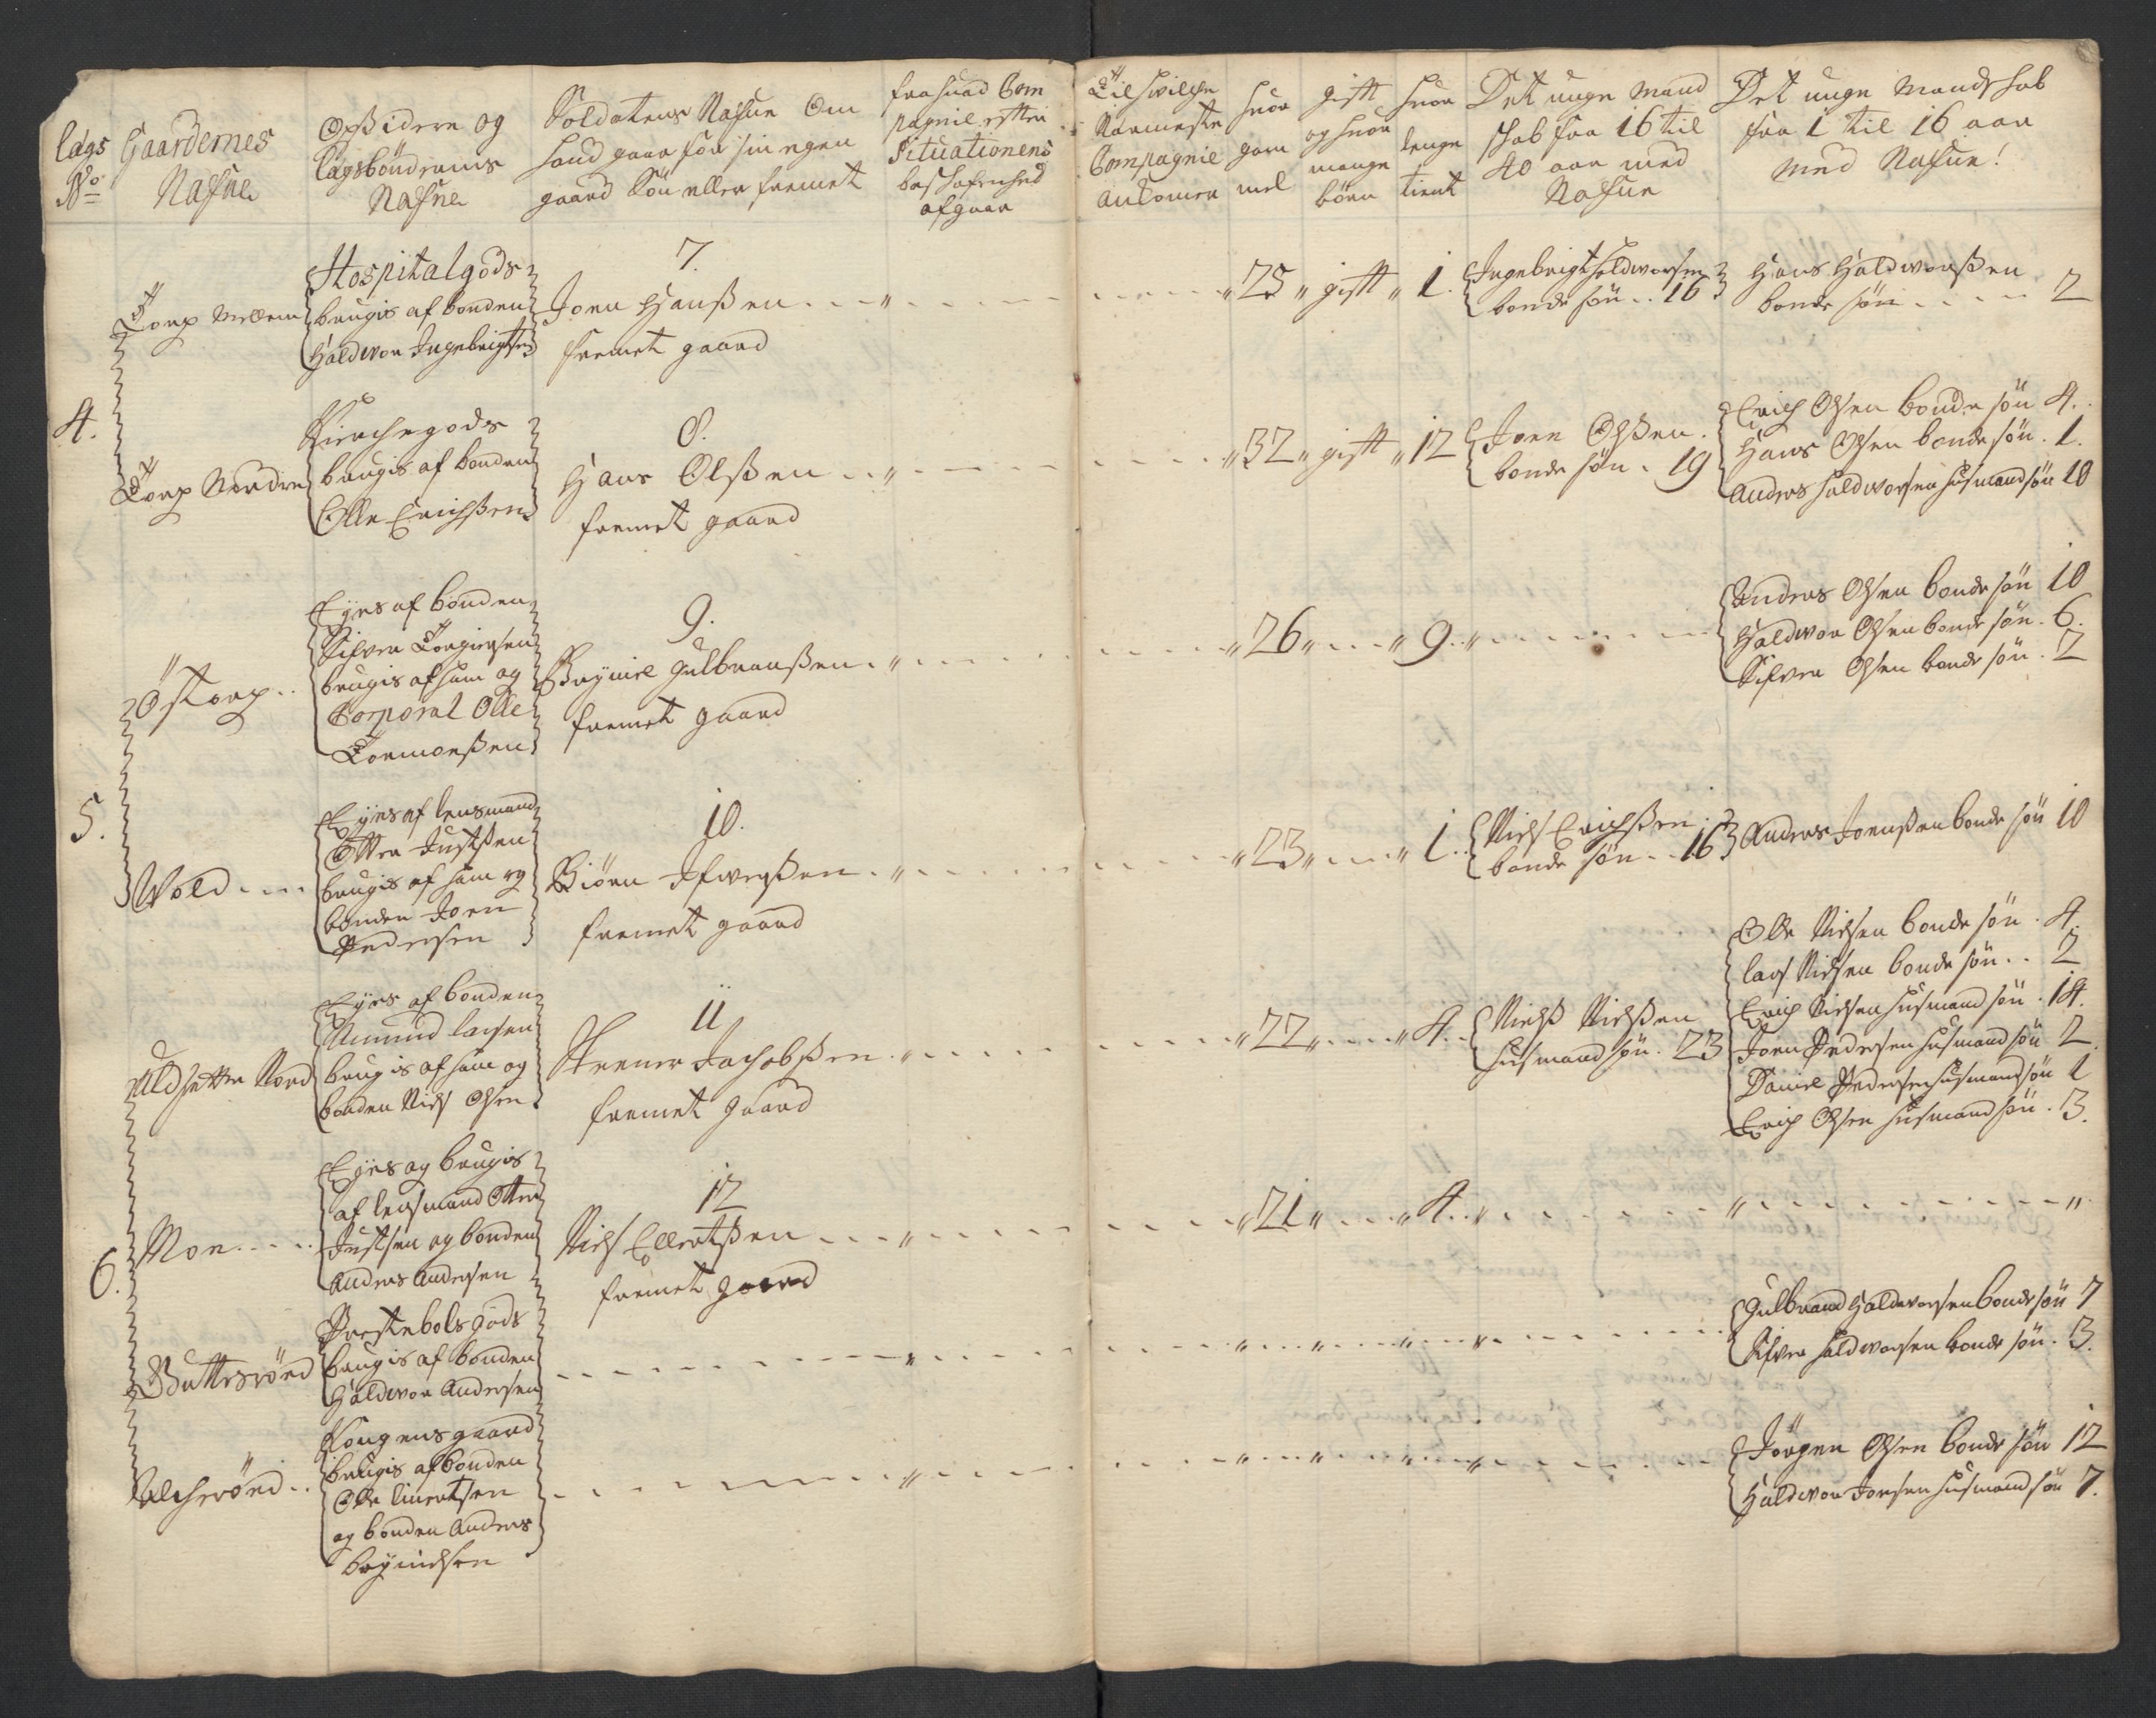 lags
No
Gaardernes
Nafne
Opsidere og
lagsböndernis
Nafne
Soldatens Nafne Om
hand gaar for sin egen
gaard Sön eller fremet
fra huad Com
pagnie efter
Situationens
beschafenhed
afgaar
Til hvilche
Nærmeste
Compagnie
ankomer
huor
gam
mel
gift
og huor
mange
börn
huor
lenge
tient
Det unge Mand
schab fra 16 til
40 aar med
Nafne
Det unge Mandschab
fra 1 til 16 aar
med Nafne!
4.
Torp Mellem
Hospitalgods
brugis af bonden
Haldwor Ingebrigtsen
7.
Joen Hanßen
fremet gaard
25 gift 1.
Ingebrigt Haldworsen
bonde sön .. 16
Hans Haldworßen
bonde sön .... 2
Torp Nordre
Kirchegods
brugis af bonden
Olle Erichßen
8.
Hans Olßen
fremet gaard
32 gift 12
Joen Olßen.
bonde sön . 19
Erich Olsen bonde sön 4.
Hans Olsen bonde sön . 1.
Anders Haldworsen husmand sön 10
5.
Östorp ..
Eyes af bonden
Sifver Torgiersen
brugis af ham og
Corporal Olle
Tormorßen
9.
Bryniel Gulbranßen
fremet gaard
26 .... 9.
Anders Olsen bonde sön 10
Haldwor Olsen bonde sön . 6.
Sifver Olsen bonde sön . 2
Wold ....
Eyes af lensmand
Otter Justßen
brugis af ham og
bonden Joen
Pedersen
10.
Biörn Ifwerßen
fremet gaard
23 .... 1.
Niels Erichßen
bonde sön .. 16
Anders Joenßen bonde sön 10
6.
Uldsetter Nord
Eyes af bonden
Amund larsen
brugis af ham og
bonden Niels Olsen
11
Steener Jachobßen
fremet gaard
22 .... 4.
Nielß Nielßen
husmand sön . 23
Olle Nielsen bonde sön . 4.
lars Nielsen bonde sön .. 2
Erich Nielsen husmand sön . 14.
Joen Pedersen husmand sön 2.
Daniel Pedersen husmand sön 1
Erich Olsen husmand sön . 3.
Moe ....
Eyes og brugis
af lensmand Otter
Justsen og bonden
Anders Andersen
12
Niels Ellertßen
fremet gaard
21 .... 4.
Buttesröed
Prestebols gods
brugis af bonden
Haldwor Andersen
Gulbrand Haldworsen bonde sön 7
Sifver Haldworsen bonde sön . 3.
Alcheröed ..
Kongens gaard
brugis af bonden
Olle linertsen
og bonden Anders
brynielsen
Jörgen Olsen bonde sön 12
Haldwor Joensen husmand sön 7.